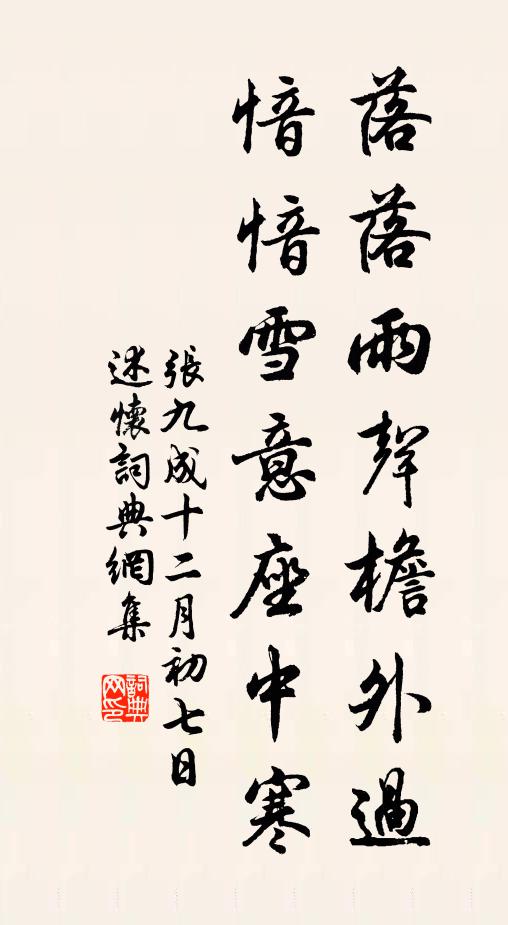 落落雨聲檐外過
愔愔雪意座中寒
張九成十二月初七日
述懷詞典網集
詞典
网印